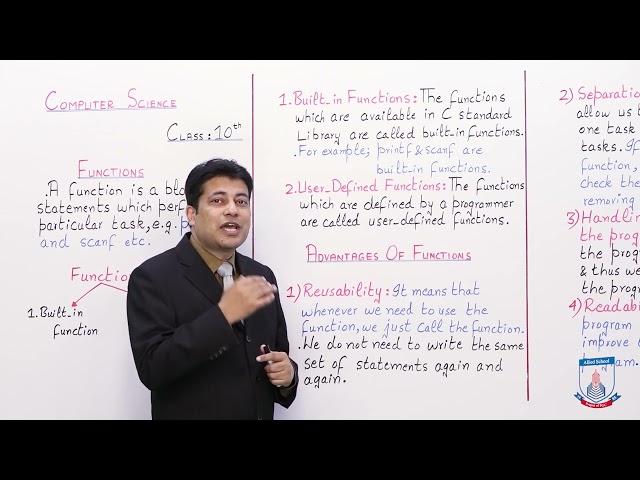 COMPUTER SCIENCE
CLASS: 10th
FUNCTIONS
.A function is a
statements which
particular task, e.g.
and scanf etc.
1. Built_in
function
1. Built_in Functions: The functions
which are available in C standard
Library are called built_in functions.
.For example; printf & scanf are
built_in functions.
2. User_Defined Functions: The functions
which are defined by a programmer
are called user_defined functions.
ADVANTAGES OF FUNCTIONS
1) Reusability: It means that
whenever we need to use the
function, we just call the function.
.We do not need to write the same
set of statements again and
again.
2)
allow us
one task
tasks. If
function,
check the
removing
3)
the
the
& thus we
the
4)
program
improve
Allied School